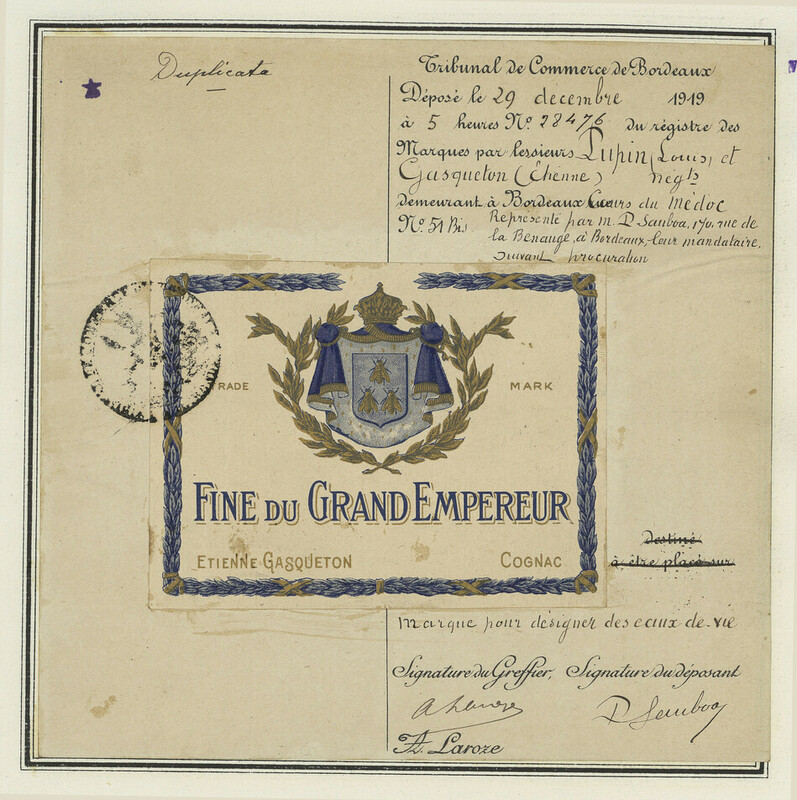 Duplicata
Tribunal de Commerce de Bordeaux
Déposé le 29 décembre 1919
à 5 heures No. 28476 du régistre des
Marques par les sieurs Lupin (Louis) et
Gasqueton (Étienne) négts
demeurant à Bordeaux Cours du Médoc
No. 51 Bis Représenté par M. P Sauboa, 170, rue de
la Benauge, à Bordeaux, leur mandataire,
suivant procuration
TRADE MARK
FINE DU GRAND EMPEREUR
ETIENNE GASQUETON COGNAC
destiné
à être placé sur
Marque pour désigner des eaux-de-vie
Signature du Greffier, Signature du déposant
P Sauboa
A. Laroze